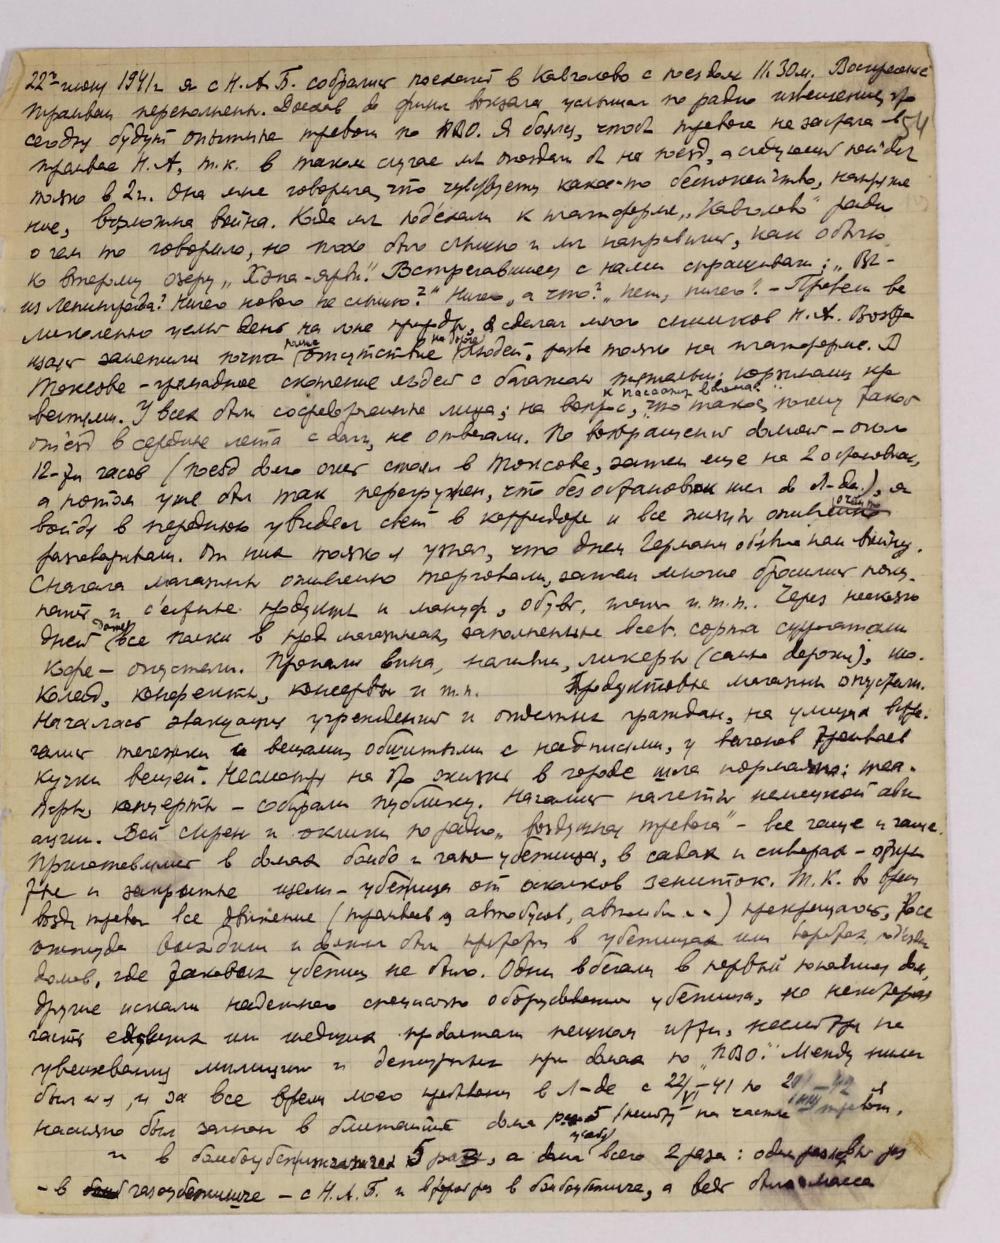 22го июня 1941г. я с Н.А.Б. собрался поехать в Кавголово с поездом 11.30м. Воскресенье
трамваи переполнены. Доехав до финл вокзала услышал по радио извещение, что
сегодня будут опытные тревоги по ПВО. Я боялся, чтоб тревога не застала в
54
трамвае Н.А, т.к. в таком случае мы опоздали б на поезд, а следующий пойдет
только в 2ч. Она мне говорила, что чувствует какое-то беспокойство, напряже
ние, возможна война. Когда мы подъехали к платформе „Кавголово" радио
о чем то говорило, но плохо было слышно и мы направились, как обычно
к второму озеру „Хэпа-ярви". Встречавшиеся с нами спрашивали: „Вы-
из Ленинграда? Ничего нового не слышно?" „Ничего, а что?" „нет, ничего". - Провели ве
ликолепно целый день на лоне природы, я сделал много снимков Н.А. Возвра
щаясь заметили почти полное отсутствие на дороге людей, разве только на платформе. В
Токсове - громадное скопление людей с багажом тюками, корзинами
вещами. У всех были сосредоточенные лица; на вопрос к пассажирам в вагоне „что такое, почему такой
отъезд в середине лета с дач, не отвечали. По возвращении домой - около
12-ти часов (поезд долго очень стоял в Токсове, затем еще на 2 остановках,
а потом уже был так перегружен, что без остановок шел до Л-да), я
войдя в переднюю увидел свет в корридоре и все жильцы оживленно
разговаривали. От них только я узнал, что днем Германия объявила нам войну.
Сначала магазины оживленно торговали, затем многие бросились поку-
пать и съестные продукты и мануф., обувь, и т.п. Через несколько
дней даже все полки в прод магазинах, заполненные всев. сорта суррогатами
кофе - опустели. Пропали вина, наливки, ликеры (сильно дорожи), шо-
колад, конфекты, консервы и т.п. Продуктовые магазины опустели.
Началась эвакуация учреждений и отдельных граждан, на улицах встре-
чались тележки с вещами, обшитыми с надписями, у вагонов трамваев
кучки вещей. Несмотря на это жизнь в городе шла нормально: теа-
тры, концерты - собирали публику. Начались налеты немецкой ави
ации. Вой сирен и оклики по радио „воздушная тревога" - все чаще и чаще.
Приготовились в домах бомбо и газо-убежища, в садах и скверах - откры
тые и закрытые щели - убежища от осколков зениток. Т.К. во время
возд тревог все движение (трамваев, автобусов, автомоби...) прекращалось, все
оттуда выходили и должны были прятаться в убежищах или воротах, подъездах
домов, где таковых убежищ не было. Одни вбегали в первый попавшийся дом,
другие искали надежного специально оборудованного убежища, но некоторая
часть едущих или идущих продолжали пешком идти, несмотря на
увещевания милиции и дежурных при домах по „ПВО". Между ними
был и я, и за все время моего пребывания в Л-де с 22/VI-41 по
насильно был загнан в ближайшие дома раз 5 (несмотря на частые тревоги),
и в бомбоубежищах 5 раз, а дома всего 2 раза: один раз
- в газоубежище - с Н.А.Б. и второй раз в бомбоубежище, а ведь была масса